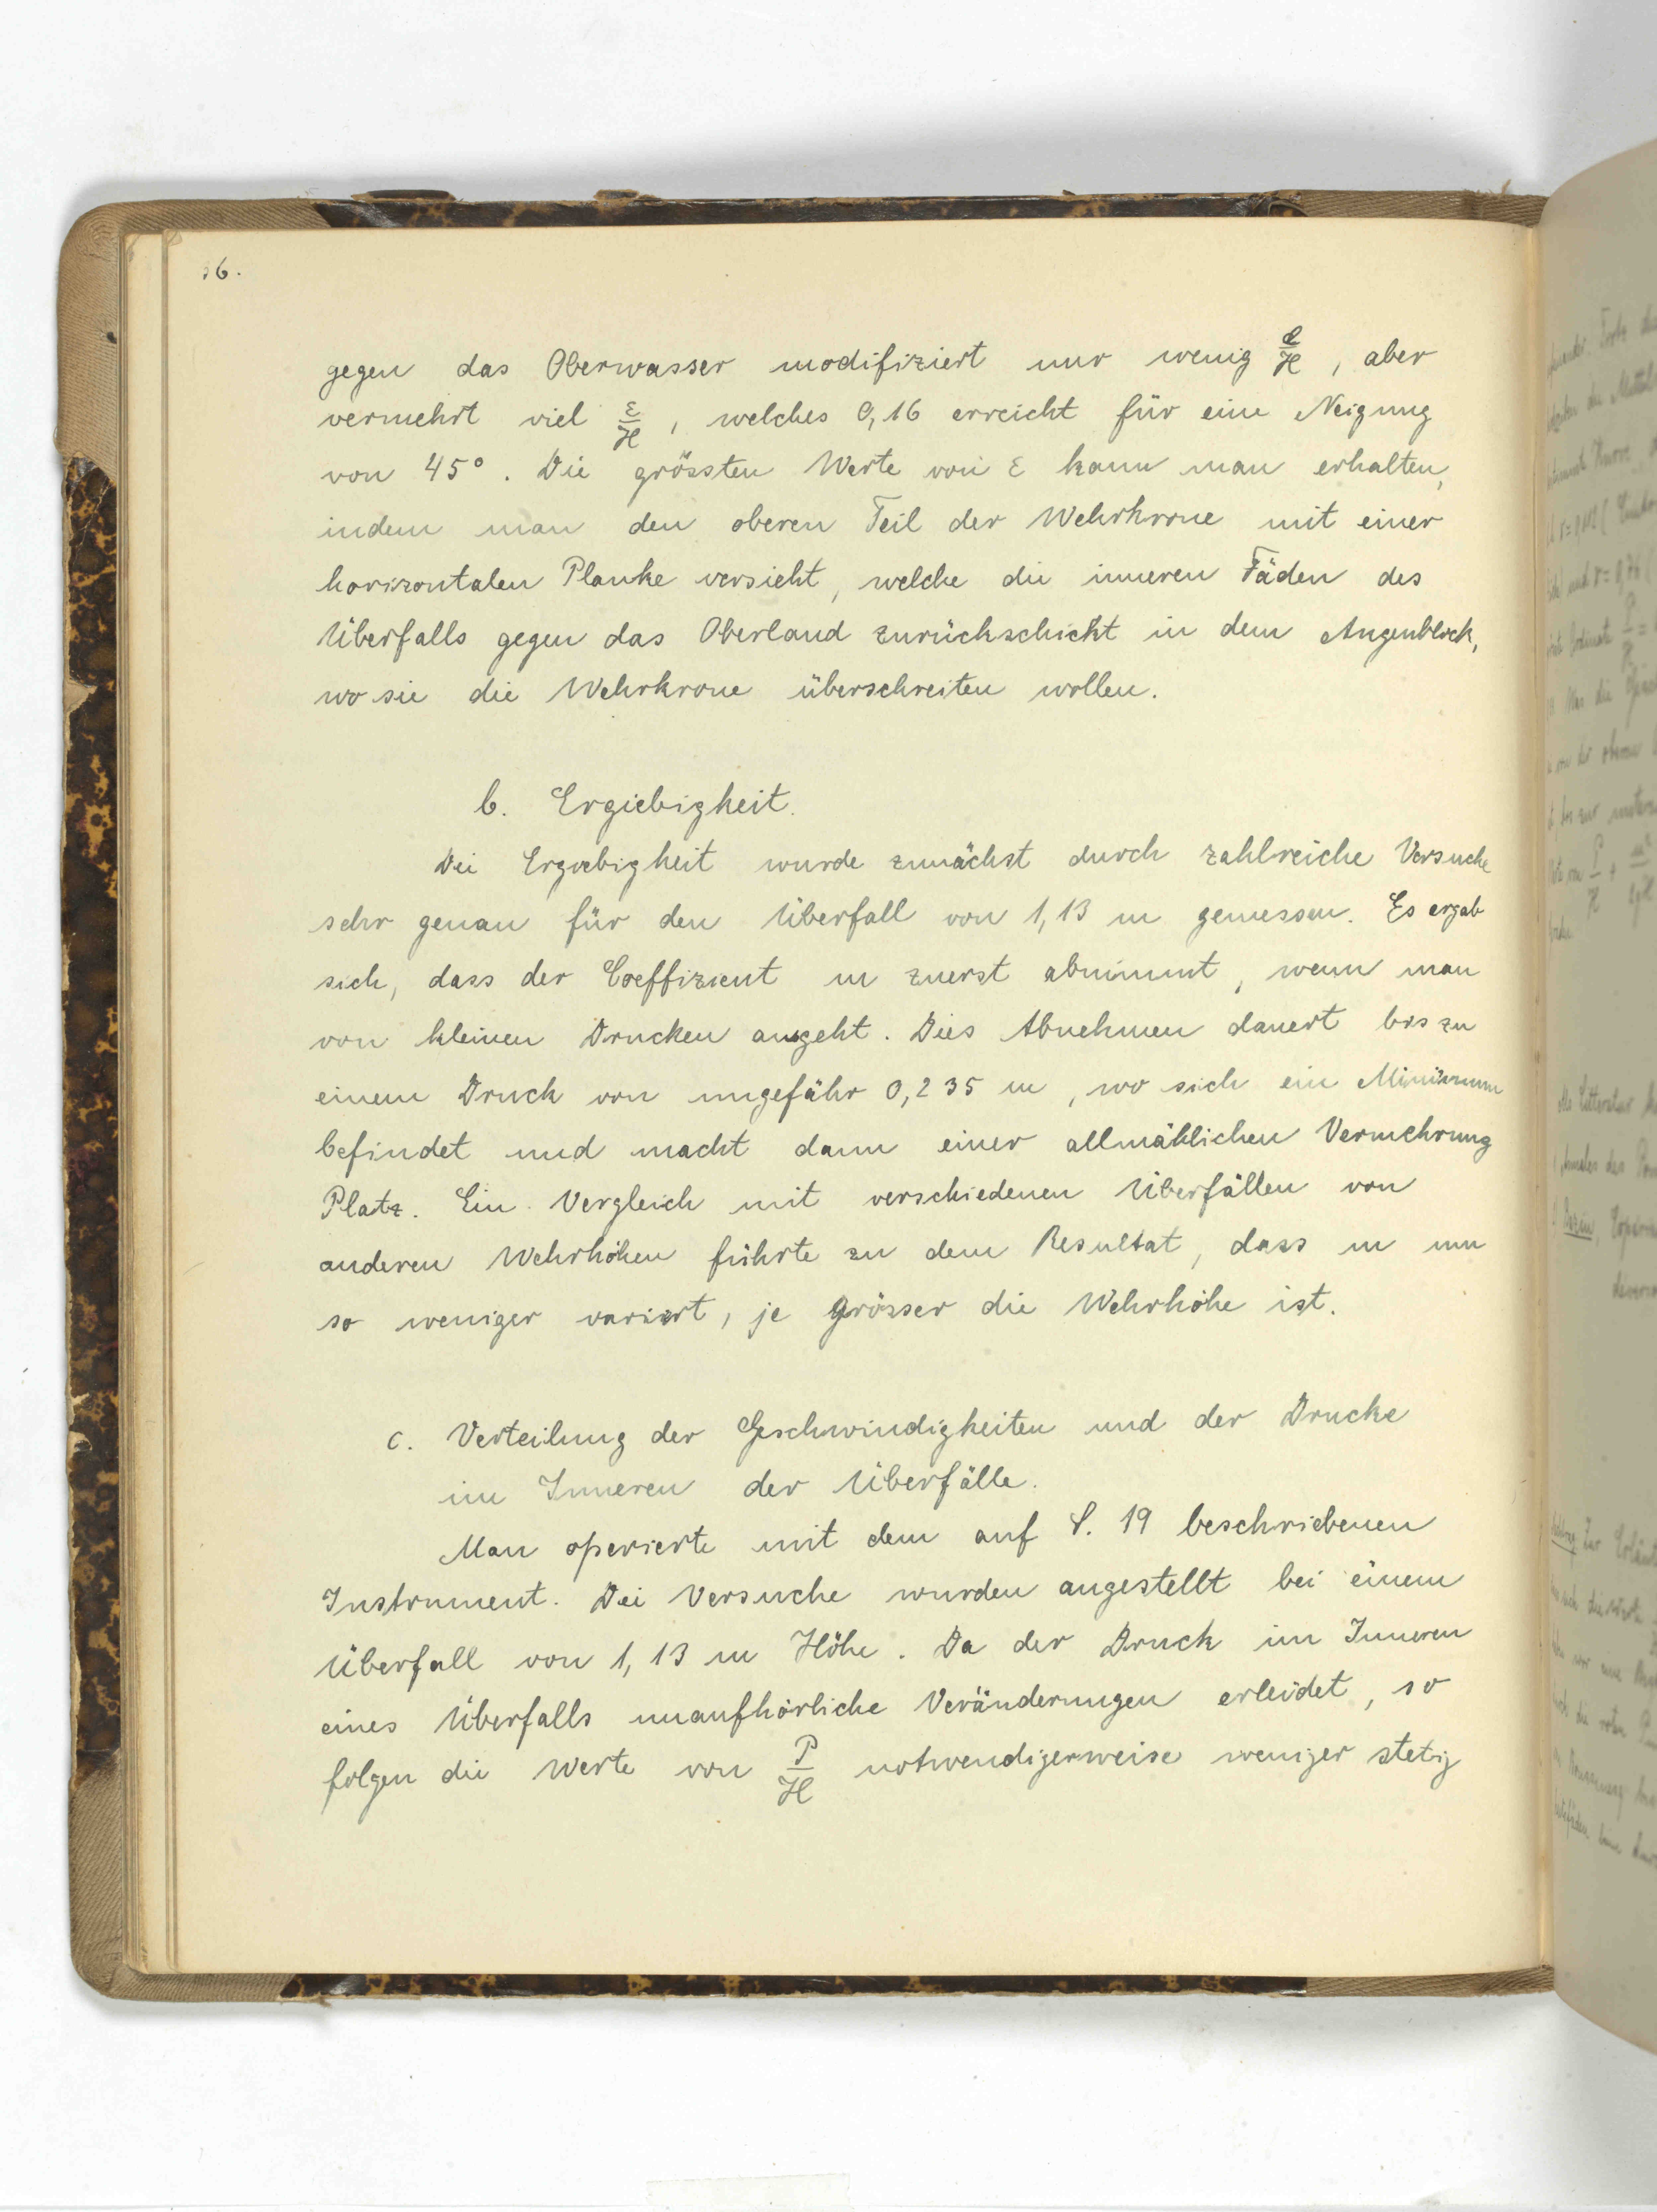 36.
gegen das Oberwasser modifiziert nur wenig e/H, aber
vermehrt viel ε/H, welches 0,16 erreicht für eine Neigung
von 45°. Die grössten Werte von ε kann man erhalten,
indem man den oberen Teil der Wehrkrone mit einer
horizontalen Planke versieht, welche die inneren Fäden des
Überfalls gegen das Oberland zurückschickt in dem Augenblick,
wo sie die Wehrkrone überschreiten wollen.
b. Ergiebigkeit.
Die Ergiebigkeit wurde zunächst durch zahlreiche Versuche
sehr genau für den Überfall von 1,13 m gemessen. Es ergab
sich, dass der Coeffizient m zuerst abnimmt, wenn man
von kleinen Drucken ausgeht. Dies Abnehmen dauert bis zu
einem Druck von ungefähr 0,235 m, wo sich ein Minimum
befindet und macht dann einer allmählichen Vermehrung
Platz. Ein Vergleich mit verschiedenen Überfällen von
anderen Wehrhöhen führte zu dem Resultat, dass m um
so weniger variiert, je grösser die Wehrhöhe ist.
c. Verteilung der Geschwindigkeiten und der Drucke
im Inneren der Überfälle.
Man operierte mit dem auf S. 19 beschriebenen
Instrument. Die Versuche wurden angestellt bei einem
Überfall von 1,13 m Höhe. Da der Druck im Inneren
eines Überfalls unaufhörliche Veränderungen erleidet, so
folgen die Werte von P/H notwendigerweise weniger stetig